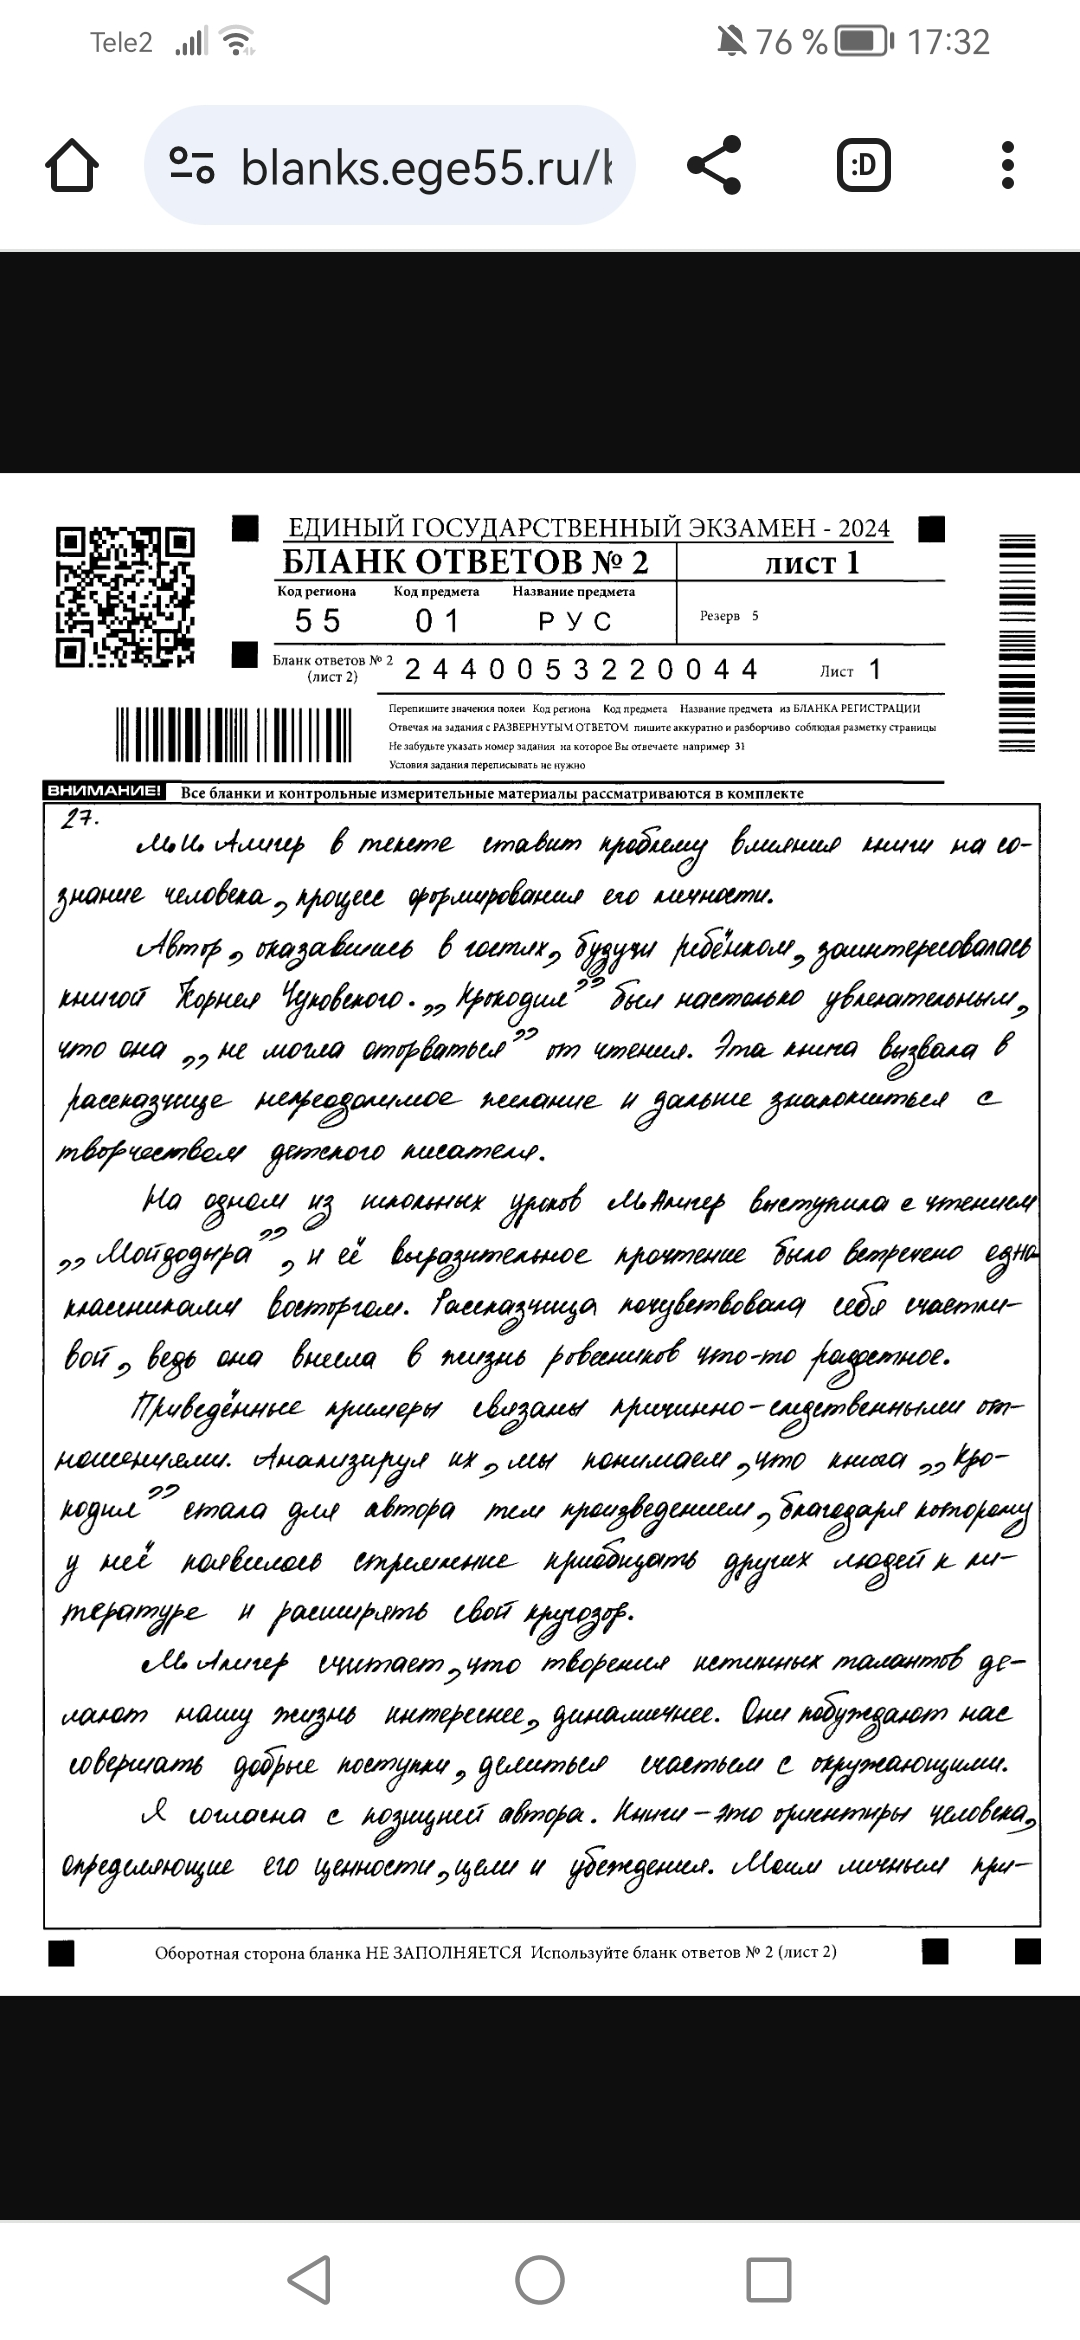 Tele2 76 % 17:32
blanks.ege55.ru/b
:D
ЕДИНЫЙ ГОСУДАРСТВЕННЫЙ ЭКЗАМЕН - 2024
БЛАНК ОТВЕТОВ № 2 лист 1
Код региона Код предмета Название предмета
55 01 РУС Резерв 5
Бланк ответов № 2 (лист 2) 2440053220044 Лист 1
Перепишите значения полей Код региона Код предмета Название предмета из БЛАНКА РЕГИСТРАЦИИ
Отвечая на задания с РАЗВЕРНУТЫМ ОТВЕТОМ пишите аккуратно и разборчиво соблюдая разметку страницы
Не забудьте указать номер задания на которое Вы отвечаете например 31
Условия задания переписывать не нужно
ВНИМАНИЕ! Все бланки и контрольные измерительные материалы рассматриваются в комплекте
27.
М. И. Алигер в тексте ставит проблему влияния книги на со-
знание человека, процесс формирования его личности.
Автор, оказавшись в гостях, будучи ребёнком, заинтересовалась
книгой Корнея Чуковского. „Крокодил” был настолько увлекательным,
что она „не могла оторваться” от чтения. Эта книга вызвала в
рассказчице непреодолимое желание и дальше знакомиться с
творчеством детского писателя.
На одном из школьных уроков М. Алигер выступила с чтением
„Мойдодыра”, и её выразительное прочтение было встречено одно
классниками восторгом. Рассказчица почувствовала себя счастли-
вой, ведь она внесла в жизнь ровесников что-то радостное.
Приведённые примеры связаны причинно-следственными от-
ношениями. Анализируя их, мы понимаем, что книга „Кро-
кодил” стала для автора тем произведением, благодаря которому
у неё появилось стремление приобщать других людей к ли-
тературе и расширять свой кругозор.
М. Алигер считает, что творения истинных талантов де-
лают нашу жизнь интереснее, динамичнее. Они побуждают нас
совершать добрые поступки, делиться счастьем с окружающими.
Я согласна с позицией автора. Книги – это ориентиры человека,
определяющие его ценности, цели и убеждения. Моим личным при-
Оборотная сторона бланка НЕ ЗАПОЛНЯЕТСЯ Используйте бланк ответов № 2 (лист 2)